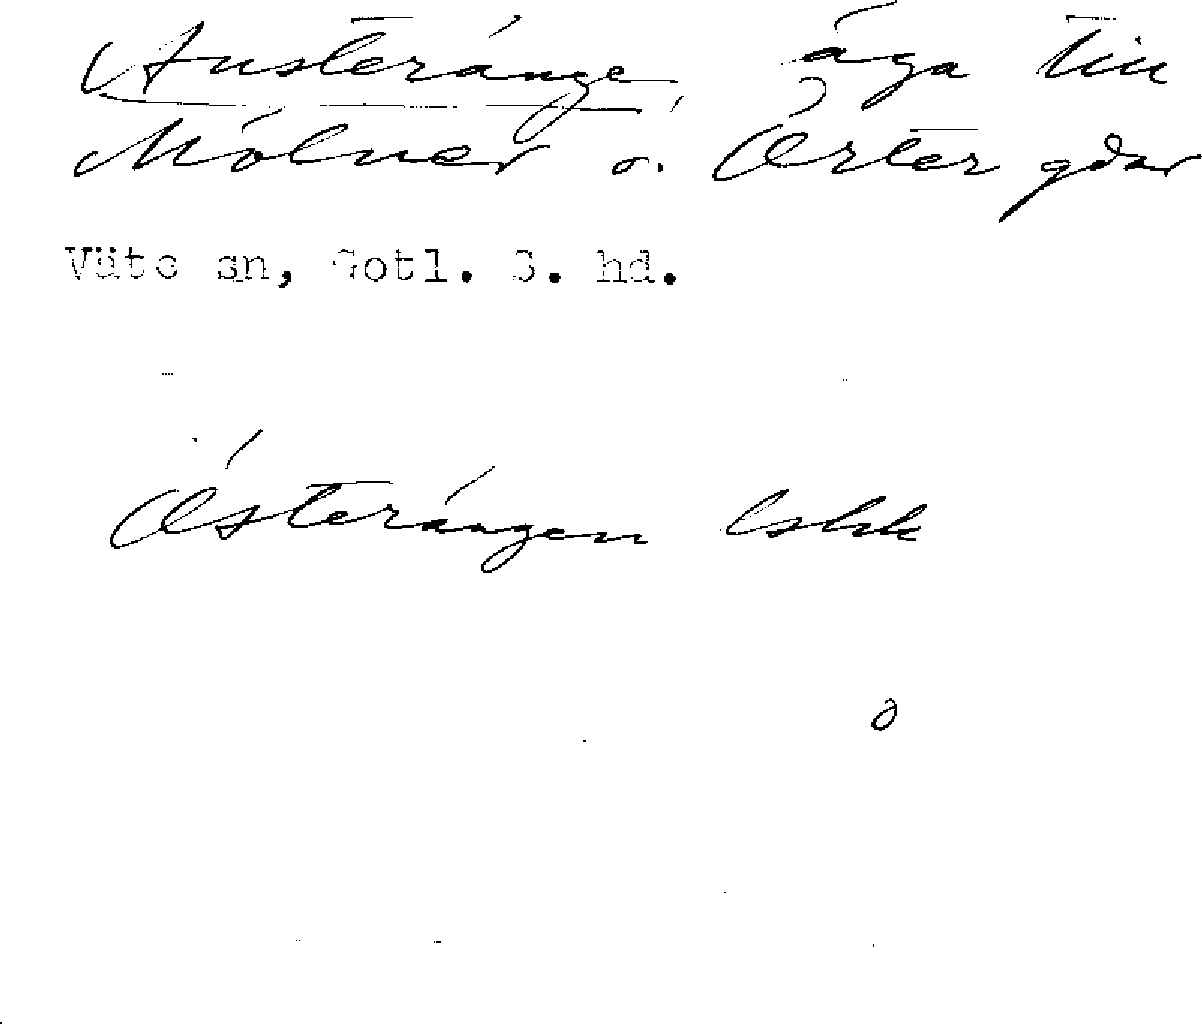 Austeränge äga till
Mölner o. Öster gdar
Väte sn, Gotl. S. hd.
Österängen